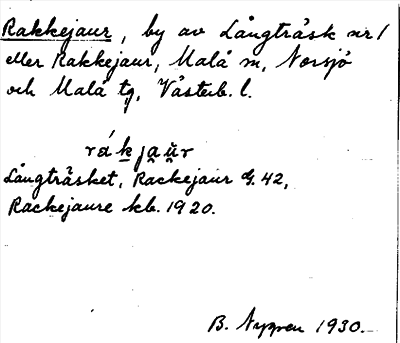 Rakkejaur, by av Långträsk nr 1
eller Rakkejaur, Malå sn, Norsjö
och Malå tg, Västerb. l.
rákja̯ŭr
Långträsket, Rackejaur G. 42,
Rackejaure kb. 1920.
B. Nygren 1930.